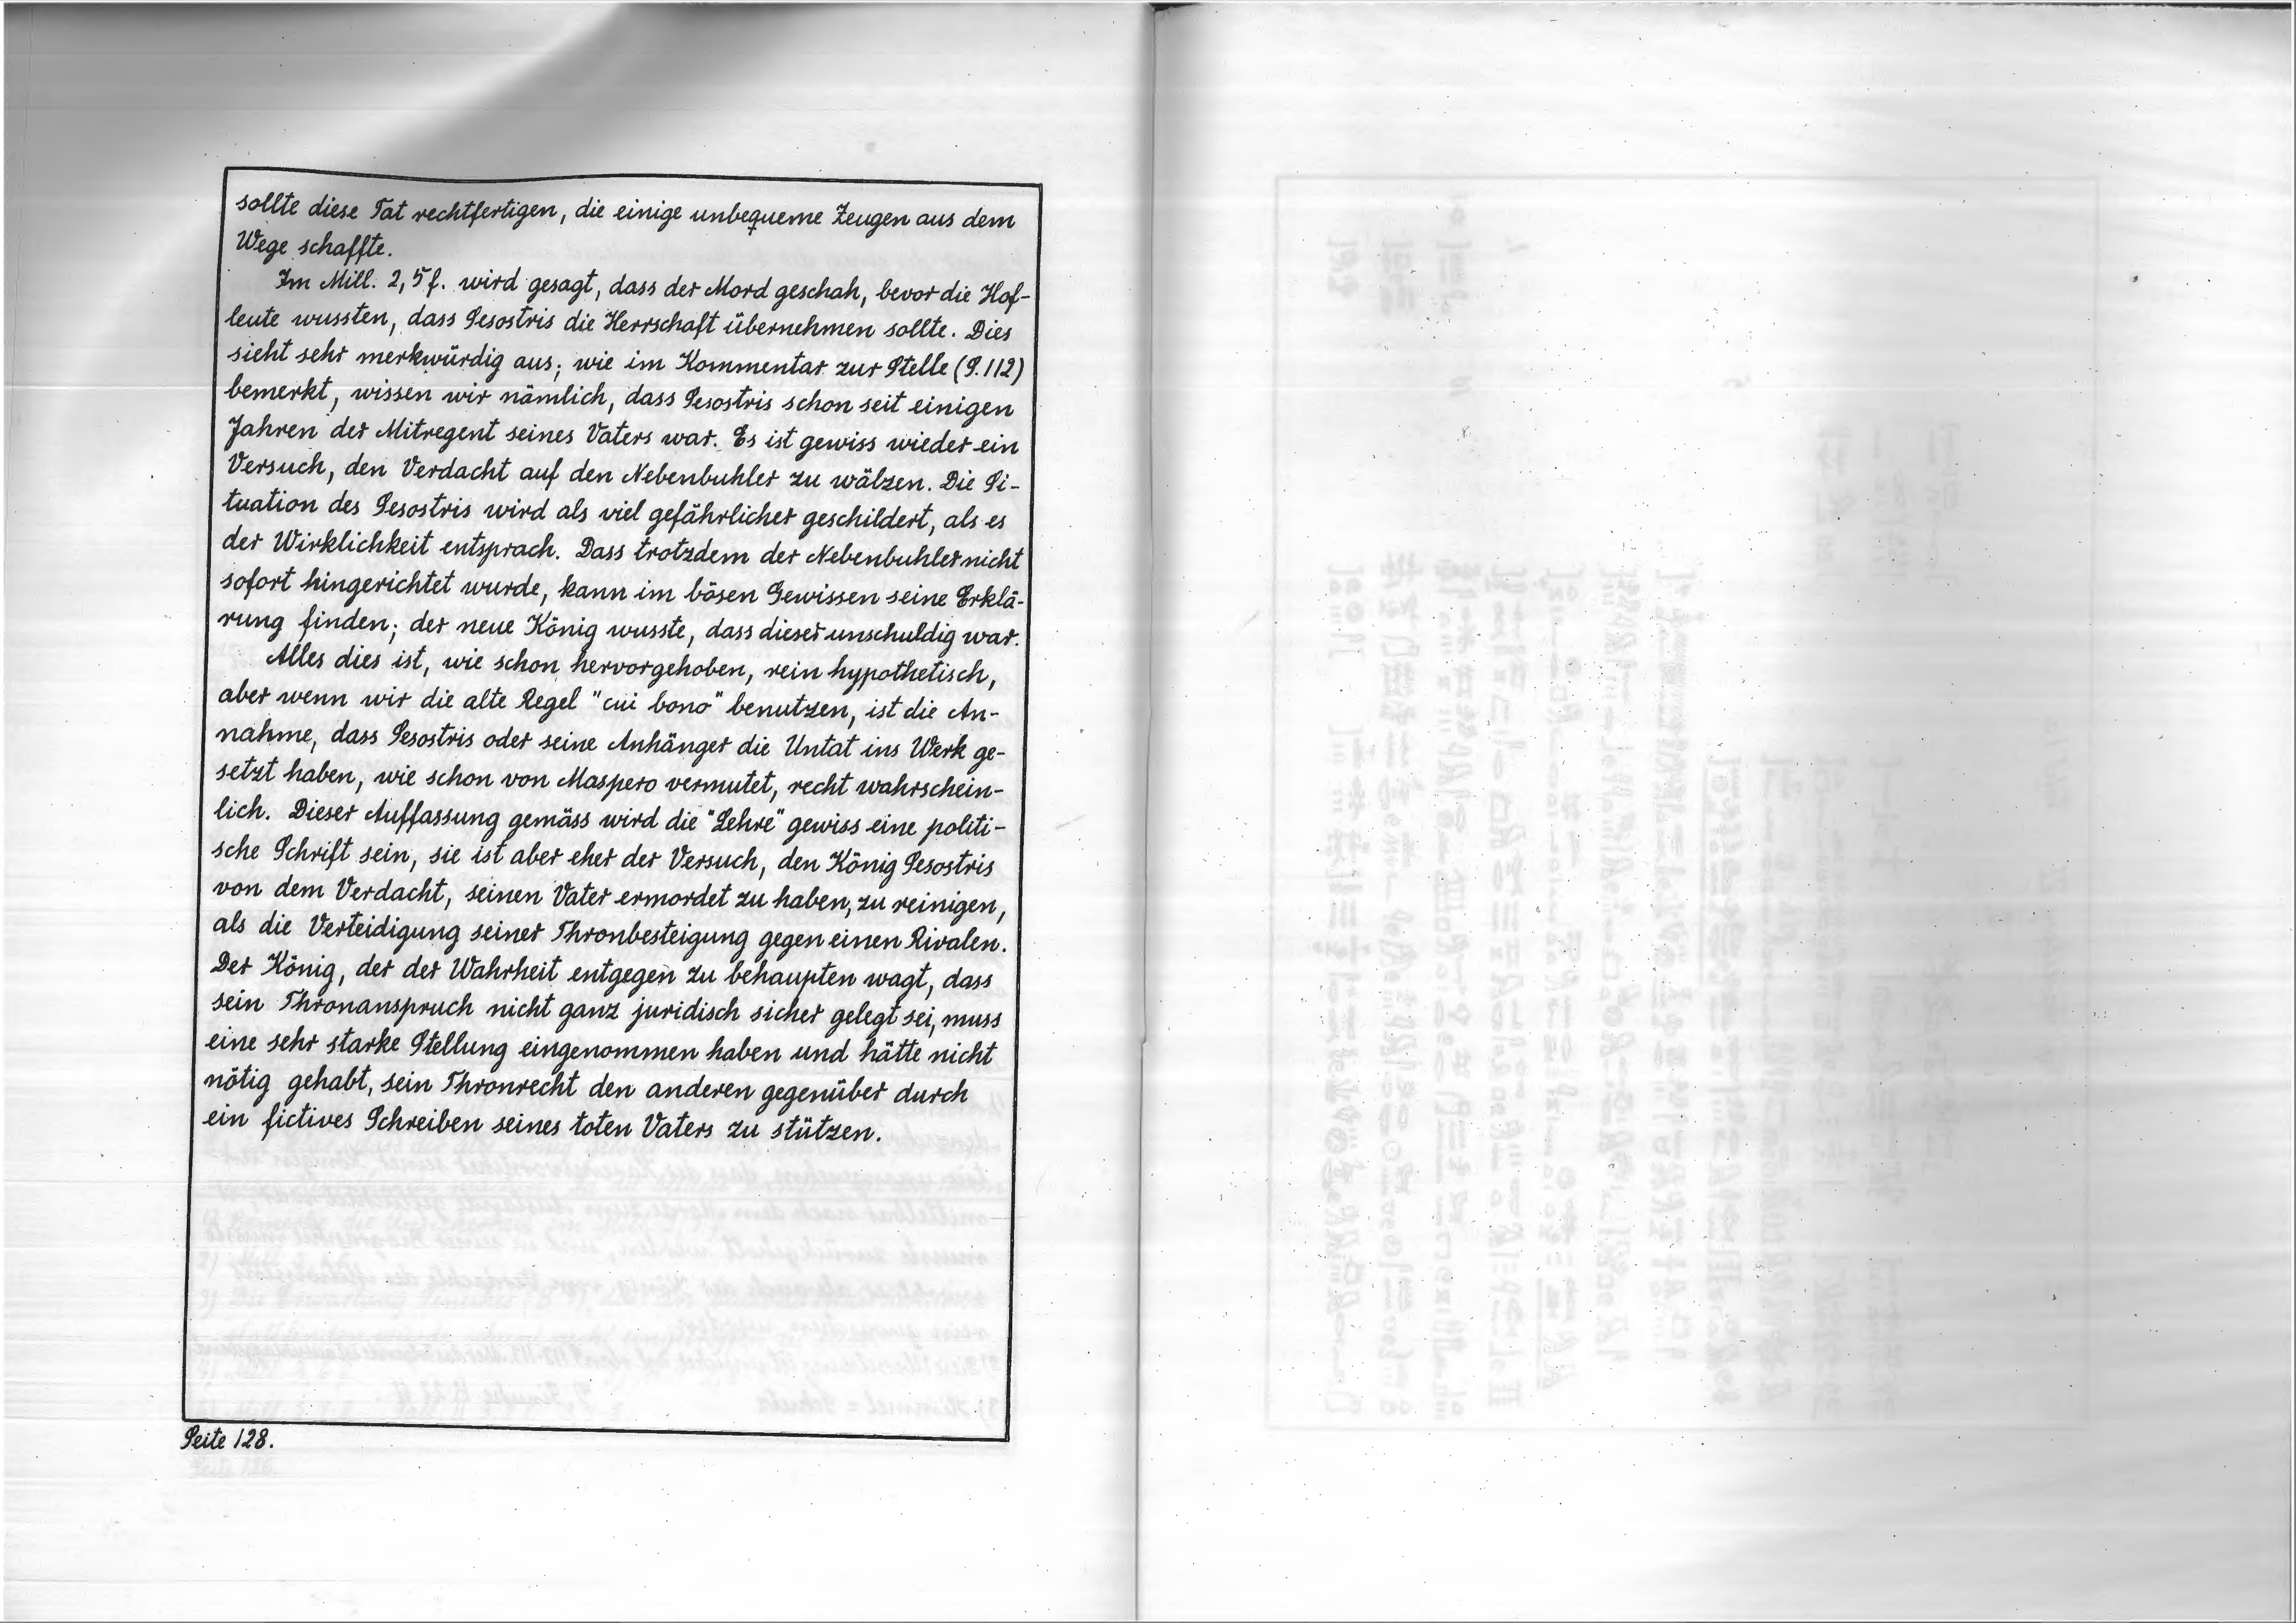 sollte diese Tat rechtfertigen, die einige unbequeme Zeugen aus dem
Wege schaffte.
Im Mill. 2,5 f. wird gesagt, dass der Mord geschah, bevor die Hof-
leute wussten, dass Sesostris die Herrschaft übernehmen sollte. Dies
sieht sehr merkwürdig aus; wie im Kommentar zur Stelle (S. 112)
bemerkt, wissen wir nämlich, dass Sesostris schon seit einigen
Jahren der Mitregent seines Vaters war. Es ist gewiss wieder ein
Versuch, den Verdacht auf den Nebenbuhler zu wälzen. Die Si-
tuation des Sesostris wird als viel gefährlicher geschildert, als es
der Wirklichkeit entsprach. Dass trotzdem der Nebenbuhler nicht
sofort hingerichtet wurde, kann im bösen Gewissen seine Erklä-
rung finden; der neue König wusste, dass dieser unschuldig war.
Alles dies ist, wie schon hervorgehoben, rein hypothetisch,
aber wenn wir die alte Regel "cui bono" benutzen, ist die An-
nahme, dass Sesostris oder seine Anhänger die Untat ins Werk ge-
setzt haben, wie schon von Maspero vermutet, recht wahrschein-
lich. Dieser Auffassung gemäss wird die "Lehre" gewiss eine politi-
sche Schrift sein, sie ist aber eher der Versuch, den König Sesostris
von dem Verdacht, seinen Vater ermordet zu haben, zu reinigen,
als die Verteidigung seiner Thronbesteigung gegen einen Rivalen.
Der König, der der Wahrheit entgegen zu behaupten wagt, dass
sein Thronanspruch nicht ganz juridisch sicher gelegt sei, muss
eine sehr starke Stellung eingenommen haben und hätte nicht
nötig gehabt, sein Thronrecht den anderen gegenüber durch
ein fictives Schreiben seines toten Vaters zu stützen.
Seite 128.